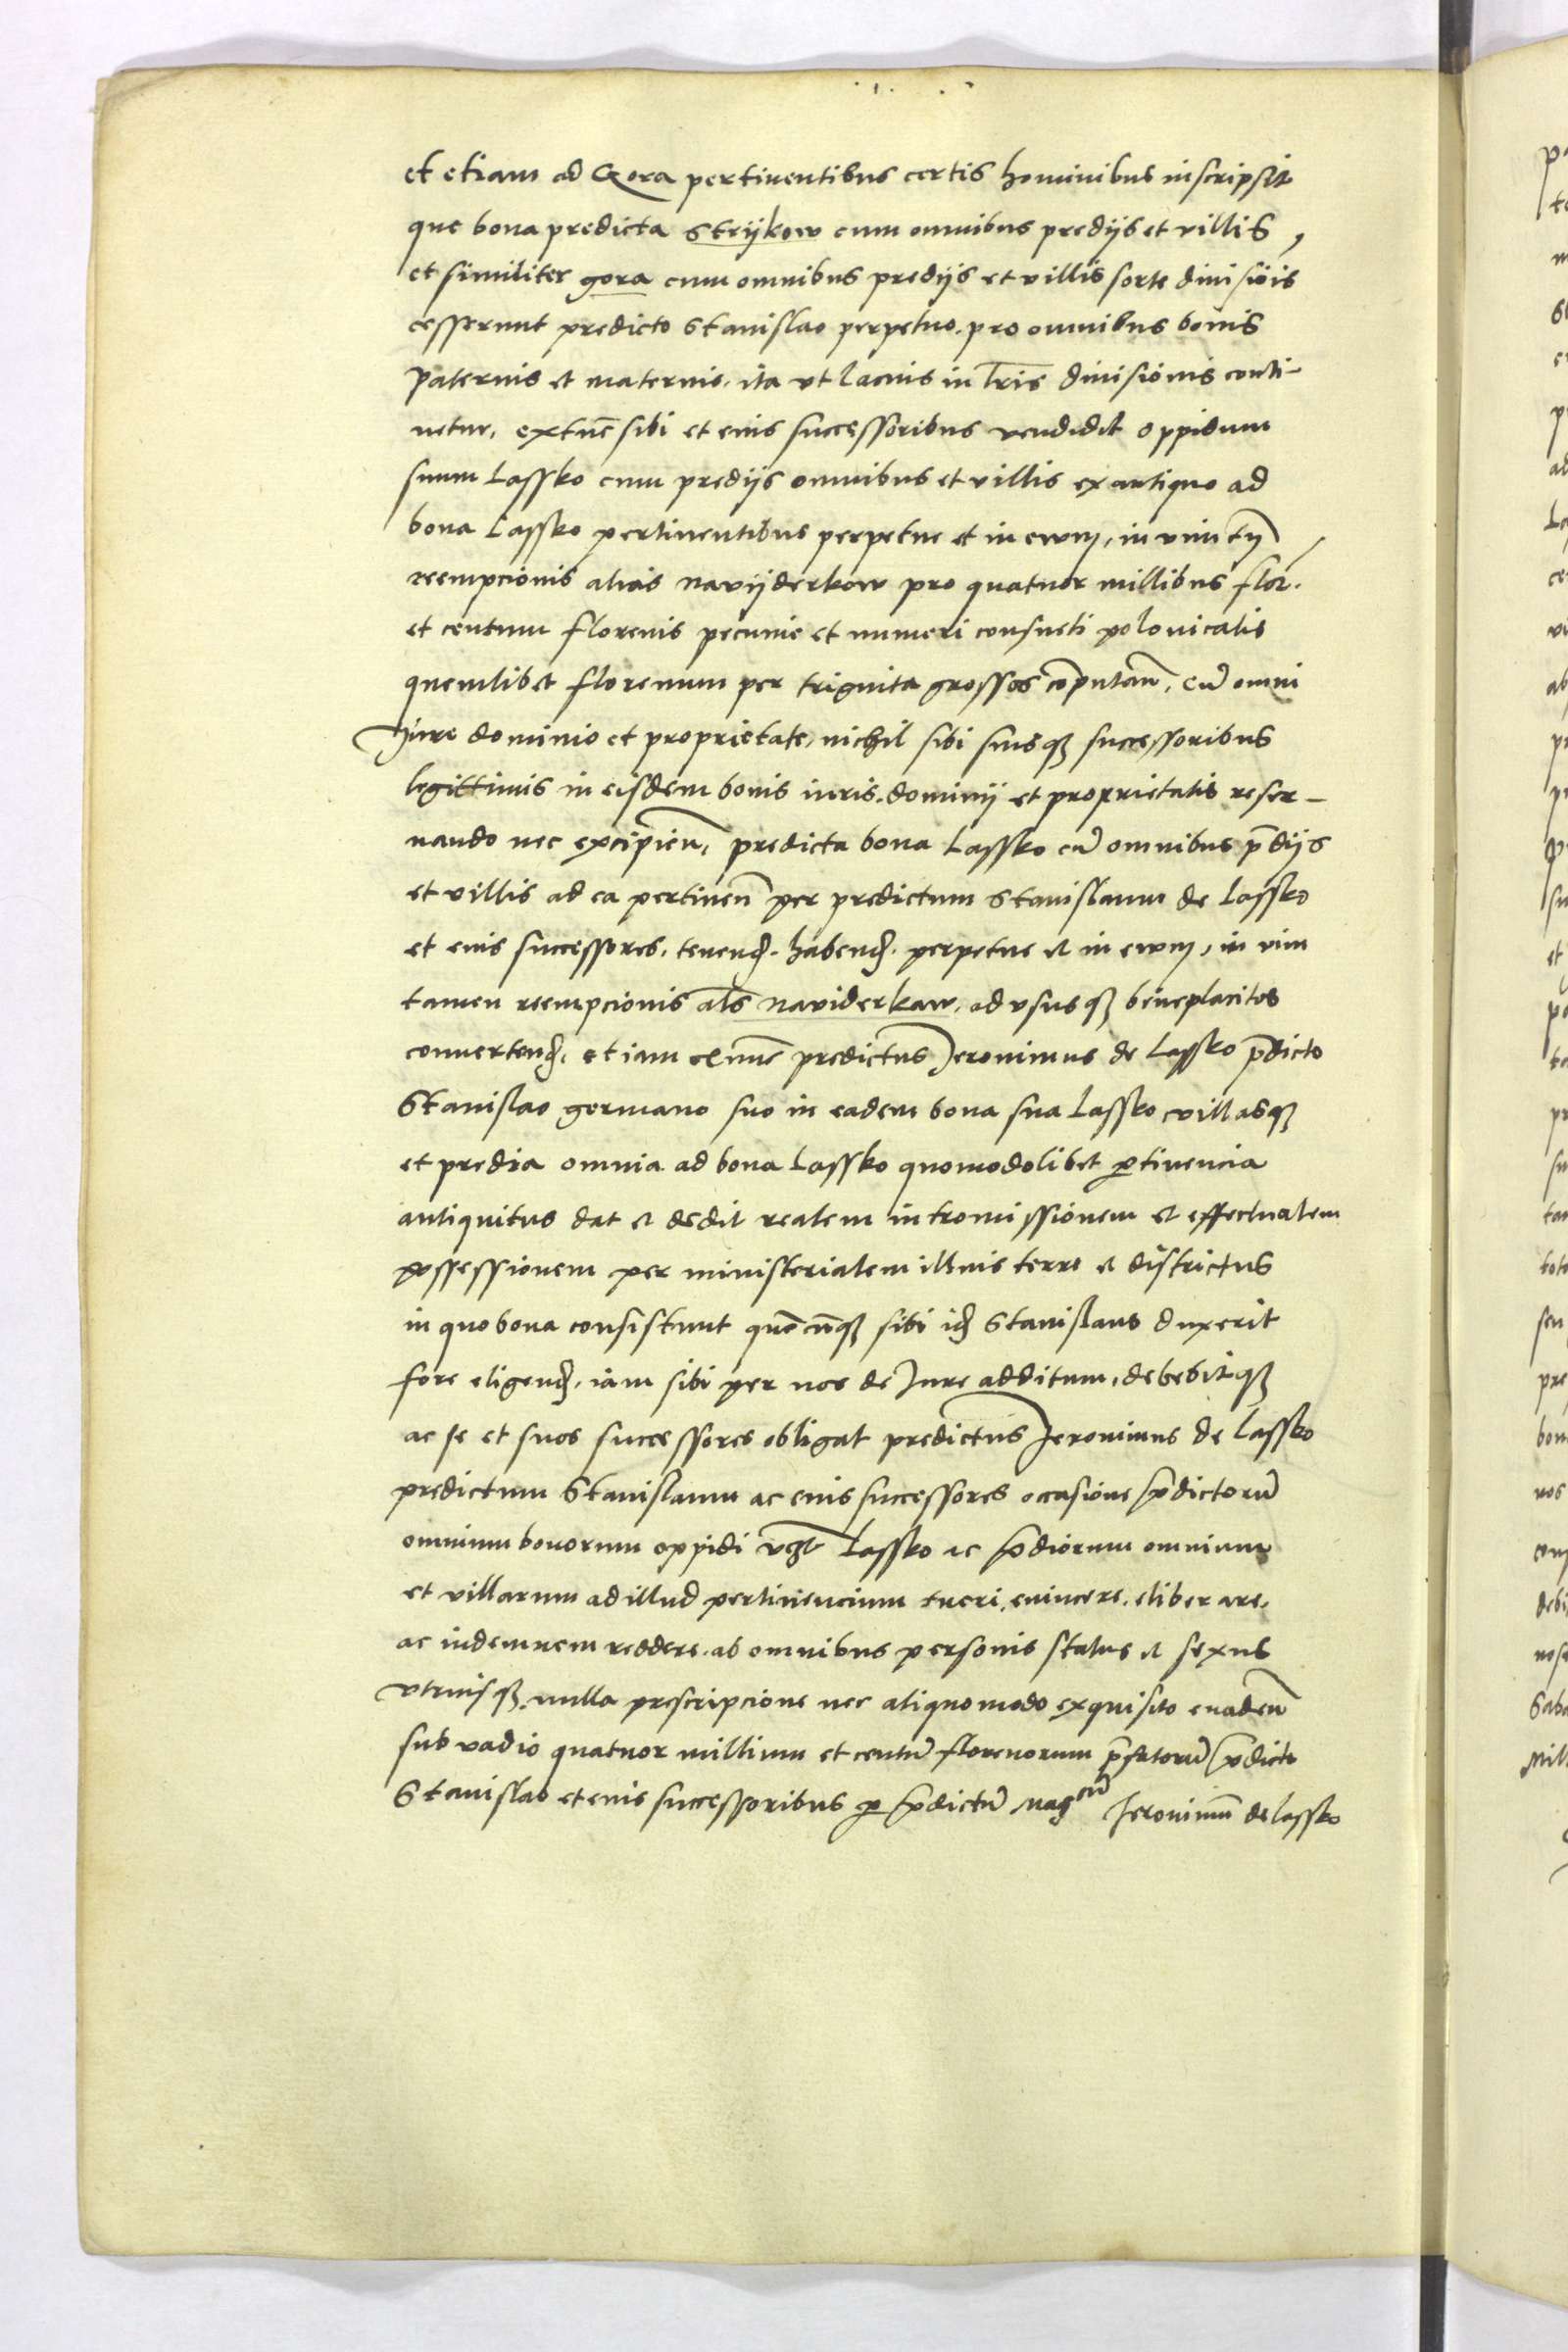 et etiam ad Gora pertinentibus certis hominibus inscripsit
que bona predicta Strijkow cum omnibus predijs et villis,
et similiter gora cum omnibus predijs et villis sorte diuisiōis
cesserunt predicto Stanislao perpetuo. pro omnibus bonis
paternis et maternis. ita vt lacius in lr̄is diuisionis conti-
netur, extūc sibi et eius successoribus vendidit oppidum
suum Lassko cum predijs omnibus et villis ex antiquo ad
bona Lassko pertinentibus perpetue et in ewm, in vim tn̄
reempcionis alias nawijderkow pro quatuor millibus flor.
et centum florenis pecunie et numeri consueti polonicalis
quemlibet florenum per triginta grossos cōputan̄, cū omni
Jure dominio et proprietate, nichil sibi suisqȝ successoribus
legittimis in eisdem bonis iuris. dominij et proprietatis reser-
uando nec excipien̄, predicta bona Lassko cū omnibus p̄dijs
et villis ad ea pertinen̄ per predictum Stanislaum de Lassko
et eius successores. tenend. habend. perpetue et in ewm, in vim
tamen reempcionis al̄s naviderkaw. ad vsusqȝ beneplacitos
conuertend. et iam exnūc predictus Jeronimus de Lassko p̄dicto
Stanislao germano suo in eadem bona sua Lassko villasqȝ
et predia omnia ad bona Lassko quomodolibet ꝑtinencia
antiquitus dat et dedit realem intromissionem et effectualem
possessionem per ministerialem illius terre et districtus
in quo bona consistunt quēcūqȝ sibi id Stanislaus duxerit
fore eligend. iam sibi per nos de Jure additum, debebitqȝ
ac se et suos successores obligat predictus Jeronimus de Lassko
predictum Stanislaum ac eius successores occasione p̄dictorū
omnium bonorum oppidi vȝt Lassko ac p̄diorum omnium
et villarum ad illud pertinencium tueri, euincere. eliberare.
ac indemnem reddere. ab omnibus personis status et sexus
vtriusqȝ. nulla prescripcione nec aliquo modo exquisito euaden̄
sub vadio quatuor millium et centū florenorum p̄fatorū p̄dicto
Stanislao et eius successoribus ꝑ p̄dictū Magcū Jeronimū de Lassko